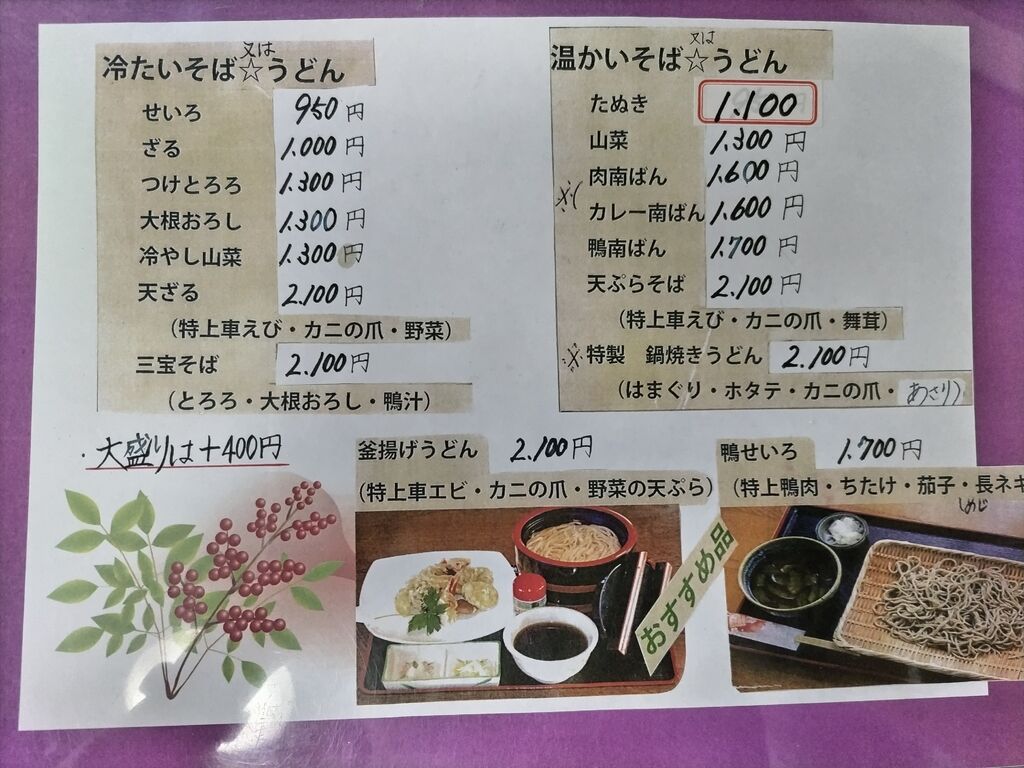 冷たいそば又は☆うどん
せいろ 950円
ざる 1.000円
つけとろろ 1.300円
大根おろし 1.300円
冷やし山菜 1.300円
天ざる 2.100円
(特上車えび・カニの爪・野菜)
三宝そば 2.100円
(とろろ・大根おろし・鴨汁)
温かいそば又は☆うどん
たぬき 1.100
山菜 1.300円
肉南ばん 1.600円
カレー南ばん 1.600円
鴨南ばん 1.700円
天ぷらそば 2.100円
(特上車えび・カニの爪・舞茸)
※特製 鍋焼きうどん 2.100円
(はまぐり・ホタテ・カニの爪・あさり)
・大盛りは+400円
釜揚げうどん 2.100円
(特上車エビ・カニの爪・野菜の天ぷら)
鴨せいろ 1.700円
(特上鴨肉・ちたけ・茄子・長ネギ
しめじ
おすすめ品